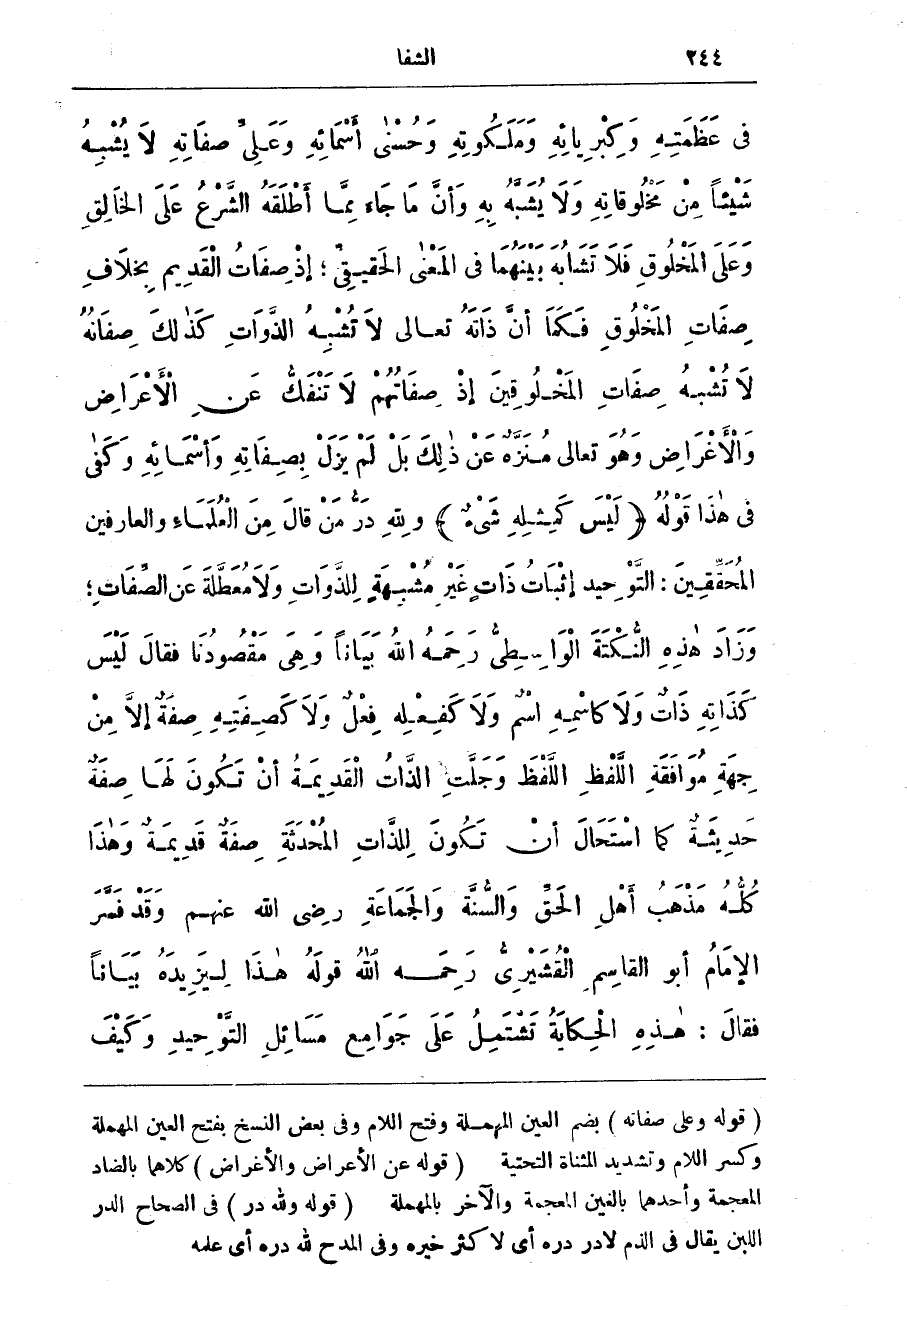 ٢٤٤ الشفا
فى عَظَمَتِهِ وَكِبْرِيائِهِ وَمَلَكُوتِهِ وَحُسْنٰى أَسْمَائِهِ وَعَلِىِّ صفَاتِهِ لَا يُشْبِهُ
شَيْئاً مِنْ مَخْلُوقَاتِهِ وَلَا يُشَبَّهُ بِهِ وَأَنَّ مَا جَاءَ مِمَّا أَطْلَقَهُ الشَّرْعُ عَلَى الخَالِقِ
وَعَلَى المَخْلُوقِ فَلَا تَشَابُهَ بَيْنَهُمَا فى المَعْنٰى الحَقِيقِىِّ ؛ إِذْ صِفَاتُ الْقَدِيمِ بِخِلَافِ
صِفَاتِ المَخْلُوقِ فَكَمَا أَنَّ ذَاتَهُ تعالى لَا تُشْبِهُ الذَّوَاتِ كَذٰلِكَ صِفَاتُهُ
لَا تُشْبِهُ صِفَاتِ المَخْلُوقِينَ إِذْ صِفَاتُهُمْ لَا تَنْفَكُّ عَنِ الْأَعْرَاضِ
وَالْأَغْرَاضِ وَهُوَ تعالى مُنَزَّهٌ عَنْ ذٰلِكَ بَلْ لَمْ يَزَلْ بِصِفَاتِهِ وَأَسْمَائِهِ وَكَفٰى
فى هٰذَا قَوْلُهُ ﴿ لَيْسَ كَمِثْلِهِ شَىْءٌ ﴾ وللهِ دَرُّ مَنْ قالَ مِنَ الْعُلَمَاءِ والعارفين
المُحَقِّقِينَ : التَّوْحِيدِ إِثْبَاتُ ذَاتٍ غَيْرِ مُشْبِهَةٍ لِلذَّوَاتِ وَلَا مُعَطَّلَةَ عَنِ الصِّفَاتِ؛
وَزَادَ هٰذِهِ النُّكْتَةَ الْوَاسِطِىُّ رَحِمَهُ اللهُ بَيَاناً وَهِىَ مَقْصُودُنَا فقالَ لَيْسَ
كَذَاتِهِ ذَاتٌ وَلَا كاسْمِهِ اسْمٌ وَلَا كَفِعْلِهِ فِعْلٌ وَلَا كَصِفَتِهِ صِفَةٌ إِلَّا مِنْ
جِهَةِ مُوَافَقَةِ اللَّفْظِ اللَّفْظَ وَجَلَّتِ الذَّاتُ الْقَدِيمَةُ أَنْ تَكُونَ لَهَا صِفَةٌ
حَدِيثَةٌ كما اسْتَحَالَ أَنْ تَكُونَ لِلذَّاتِ المُحْدَثَةِ صِفَةٌ قَدِيمَةٌ وَهٰذَا
كُلُّهُ مَذْهَبُ أَهْلِ الحَقِّ وَالسُّنَّةِ وَالجَمَاعَةِ رضى الله عنهم وَقَدْ فَسَّرَ
الإِمَامُ أبو القاسِمِ الْقُشَيْرِىُّ رَحِمَهُ اللهُ قولَهُ هٰذَا لِيَزِيدَهُ بَيَاناً
فقالَ : هٰذِهِ الْحِكايَةُ تَشْتَمِلُ عَلَى جَوَامِعِ مَسَائِلِ التَّوْحِيدِ وَكَيْفَ
( قوله وعلى صفاته ) بضم العين المهملة وفتح اللام وفى بعض النسخ بفتح العين المهملة
وكسر اللام وتشديد المثناة التحتية ( قوله عن الأعراض والأغراض ) كلاهما بالضاد
المعجمة وأحدهما بالغين المعجمة والآخر بالمهملة ( قوله ولله در ) فى الصحاح الدر
اللبن يقال فى الذم لادر دره أى لا كثر خيره وفى المدح لله دره أى عمله